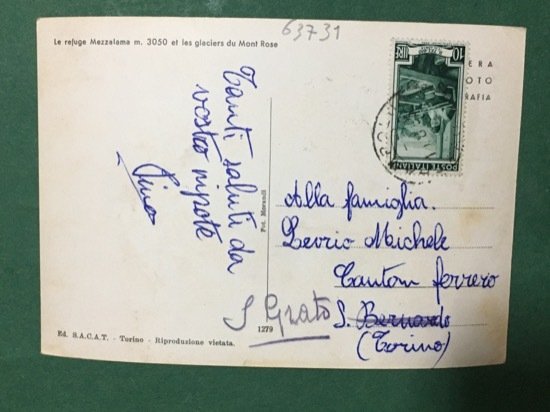 63731
Le refuge Mezzalama m. 3050 et les glaciers du Mont Rose
Tanti saluti da
vostro nipote
Pino
10 LIRE
POSTE ITALIANE
ERA
OTO
RAFIA
Fot. Morandi
Alla famiglia.
Levrio Michele
Canton ferrero
S. Bernardo
S Grato
(Torino)
1279
Ed. S.A.C.A.T. - Torino - Riproduzione vietata.